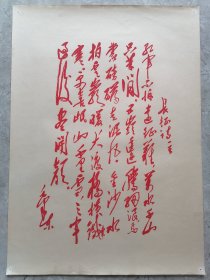 长征诗一首
红军不怕远征难万水千山
只等闲五岭逶迤腾细浪乌
蒙磅礴走泥丸金沙水
拍云崖暖大渡桥横铁
索寒更喜岷山千里雪三军
过后尽开颜
毛泽东